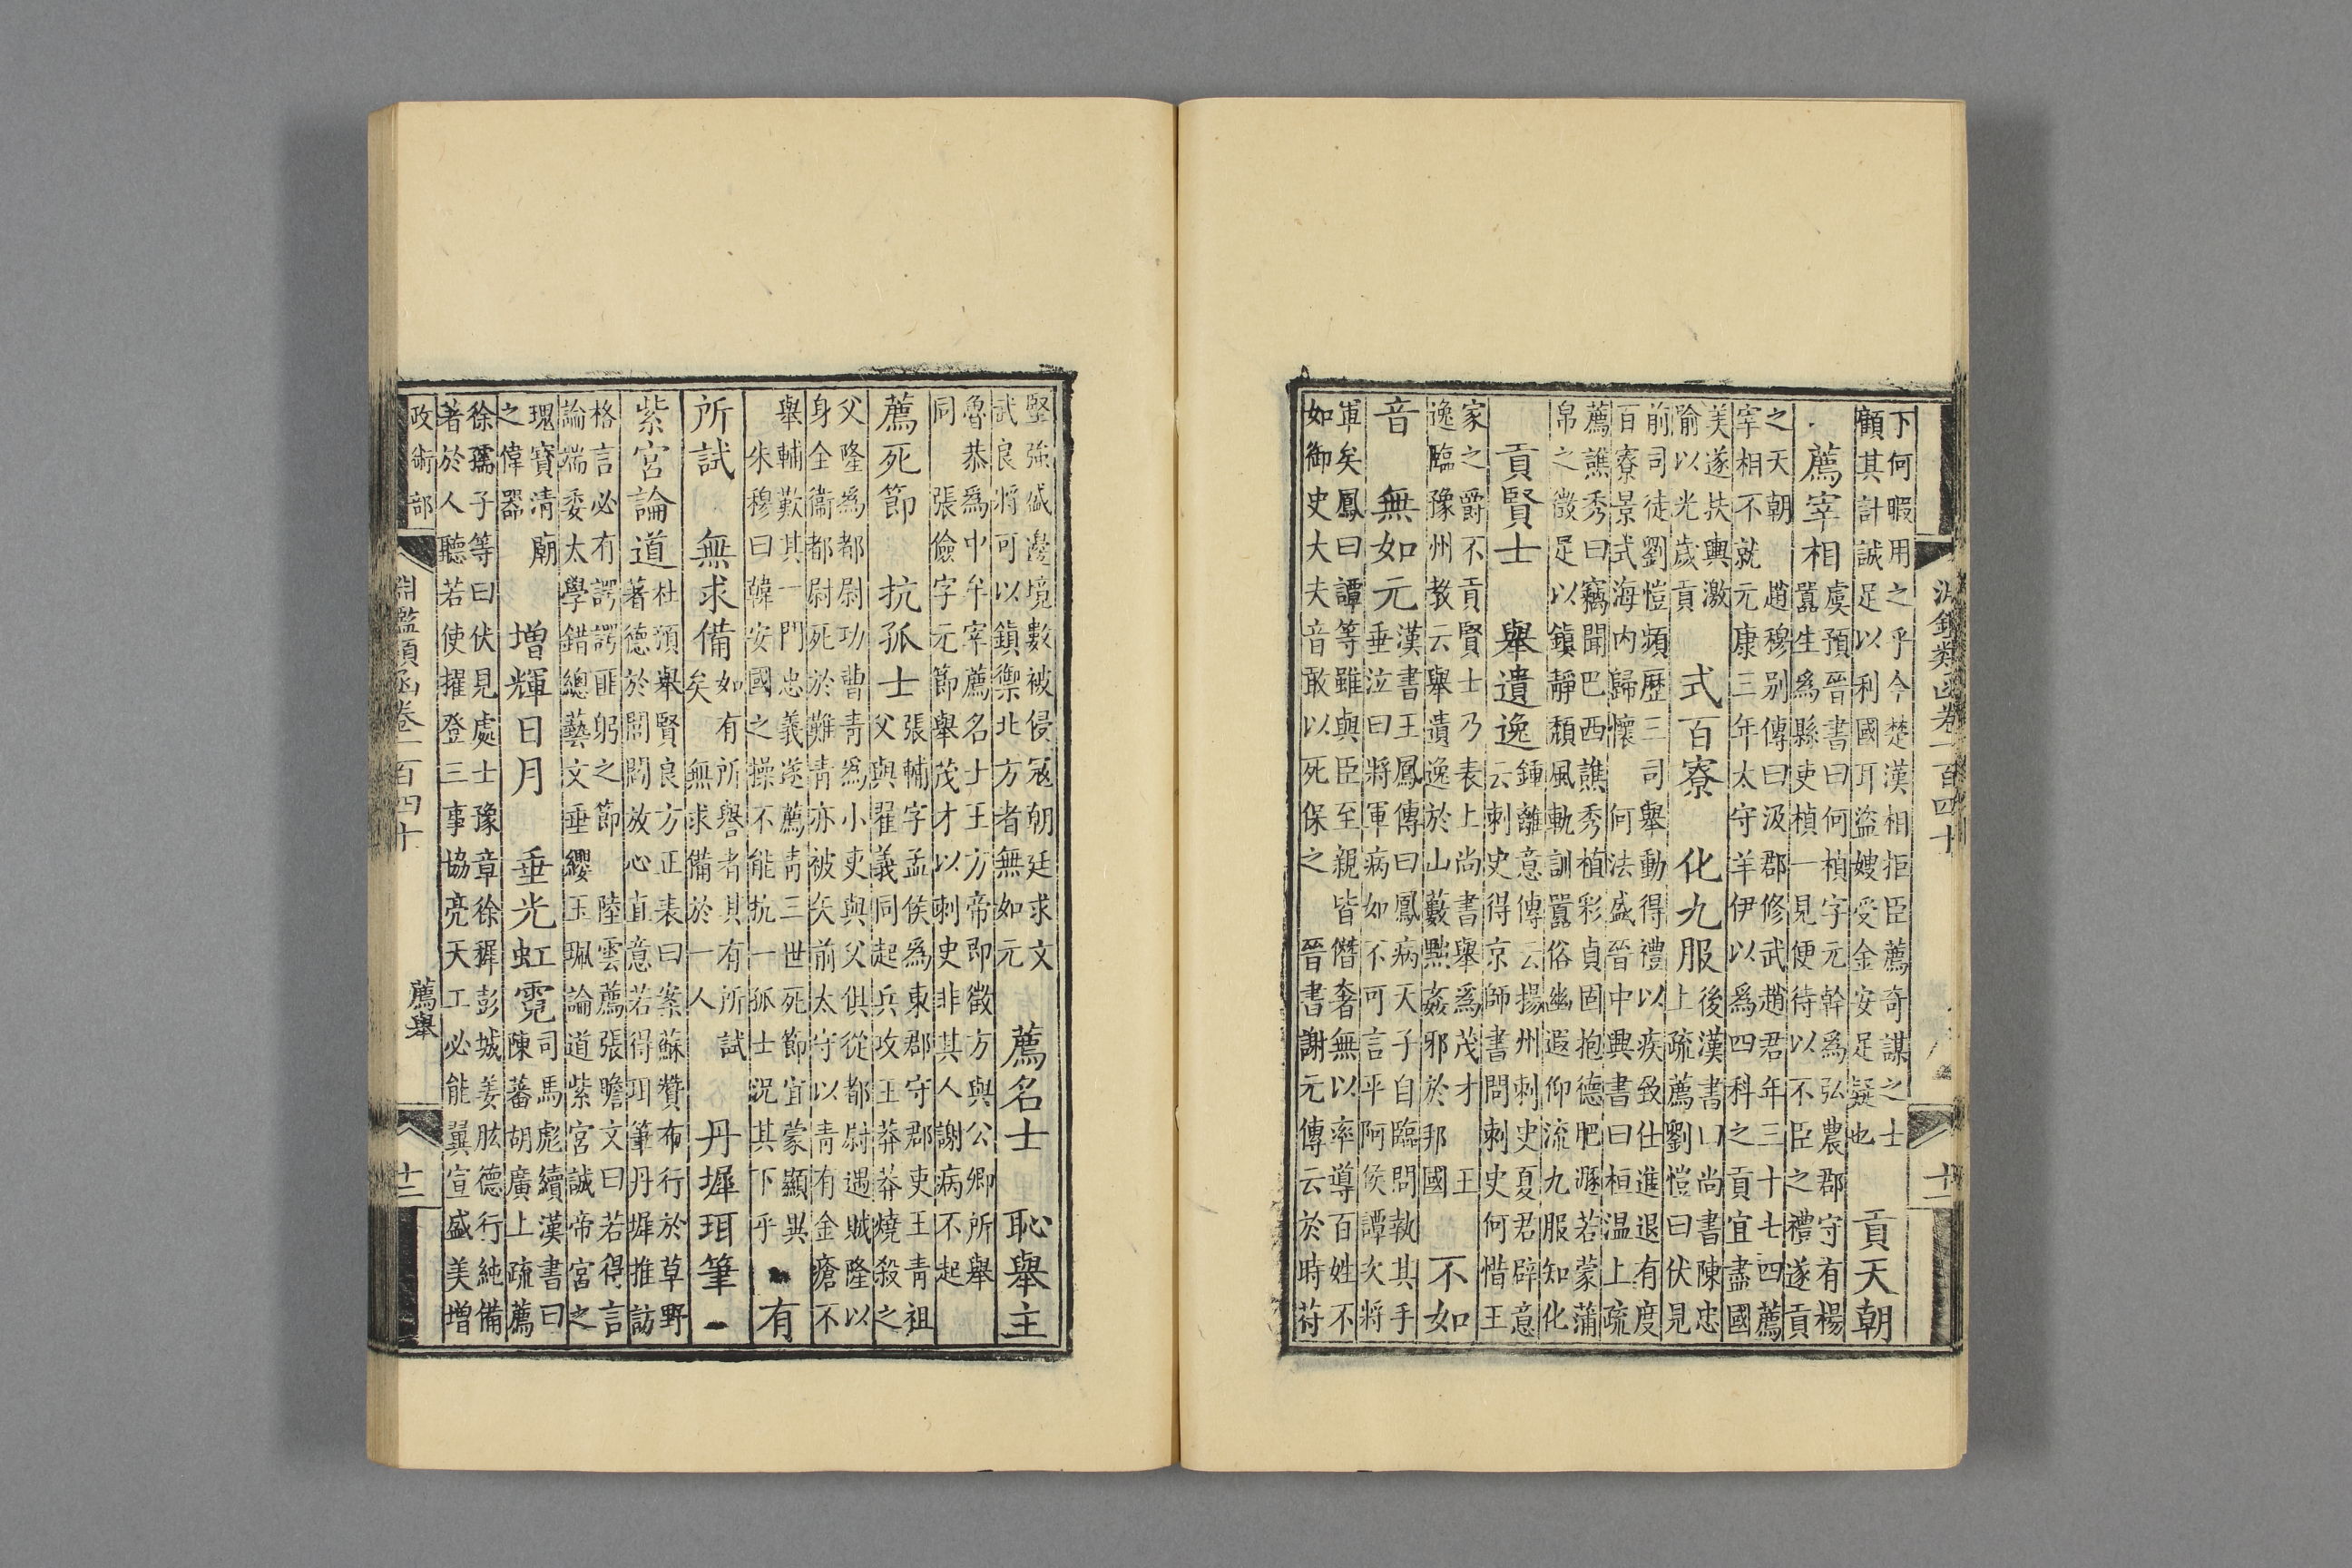 淵鑑類函卷一百四十 十一
下何暇用之乎今楚漢相拒臣薦奇謀之士
顧其計誠足以利國耳盜嫂受金安足疑也
貢天朝
薦宰相
虞預晉書曰何楨字元幹為弘農郡守有楊
囂生為縣吏楨一見便待以不臣之禮遂貢
之天朝 趙穆別傳曰汲郡修武趙君年三十七四薦
宰相不就元康三年太守羊伊以為四科之貢宜盡國
美遂扶輿激
喻以光歲貢
式百寮 化九服
後漢書曰尚書陳忠
上疏薦劉愷曰伏見
前司徒劉愷頻歷三司舉動得禮以疾致仕進退有度
百寮景式海內歸懷 何法盛晉中興書曰桓溫上疏
薦譙秀曰竊聞巴西譙秀植彩貞固抱德肥遯若蒙蒲
帛之徵足以鎮靜頹風軌訓囂俗幽遐仰流九服知化
貢賢士 舉遺逸
鍾離意傳云揚州刺史夏君辟意
云刺史得京師書問刺史何惜王
家之爵不貢賢士乃表上尚書舉為茂才 王
逸臨豫州教云舉遺逸於山藪黜姦邪於邦國
不如
音 無如元
漢書王鳳傳曰鳳病天子自臨問執其手
垂泣曰將軍病如不可言平阿侯譚次將
軍矣鳳曰譚等雖與臣至親皆僭奢無以率導百姓不
如御史大夫音敢以死保之 晉書謝元傳云於時苻
堅強盛邊境數被侵寇朝廷求文
武良將可以鎮禦北方者無如元
薦名士 恥舉主
魯恭為中牟宰薦名士王方帝即徵方與公卿所舉
同 張儉字元節舉茂才以刺史非其人謝病不起
薦死節 抗孤士
張輔字孟侯為東郡守郡吏王青祖
父與翟義同起兵攻王莽莽燒殺之
父隆為都尉功曹青為小吏與父俱從都尉遇賊隆以
身全衞都尉死於難青亦被矢前太守以青有金瘡不
舉輔歎其一門忠義遂薦青三世死節宜蒙顯異
朱穆曰韓安國之操不能抗一孤士況其下乎
有
所試 無求備
如有所譽者其有所試
矣 無求備於一人
丹墀珥筆
紫宮論道
杜預舉賢良方正表曰案蘇贊布行於草野
著德於閭閻放心直意若得珥筆丹墀推訪
格言必有諤諤匪躬之節 陸雲薦張瞻文曰若得言
論端委太學錯總藝文垂纓玉珮論道紫宮誠帝宮之
瑰寶清廟
之偉器
增輝日月 垂光虹霓
司馬彪續漢書曰
陳蕃胡廣上疏薦
徐孺子等曰伏見處士豫章徐穉彭城姜肱德行純備
著於人聽若使擢登三事協亮天工必能翼宣盛美增
政術部 淵鑑類函卷一百四十 薦舉 十二